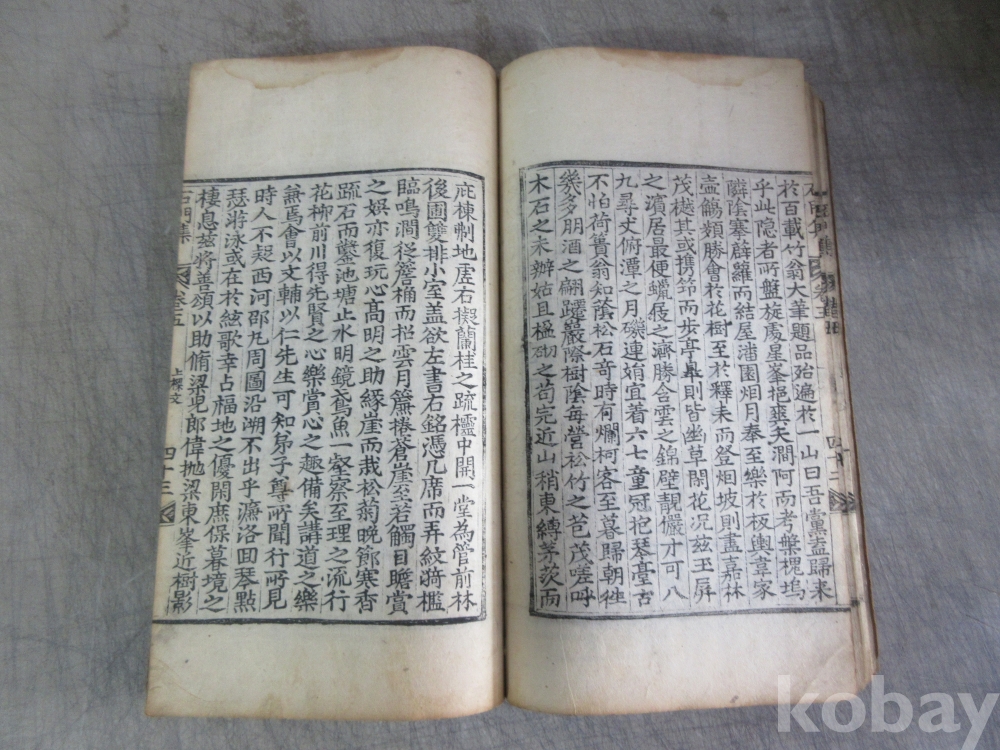 石門集 卷五 四十二
於百載竹翁大筆題品殆遍於一山曰吾黨盍歸来
乎此隐者所盤旋處星峯挹爽矢澗阿而考槃槐塢
隣陰搴薜蘿而結屋潘園烟月奉至樂於板輿韋家
壺觴類勝會於花樹至於釋耒而登烟坡則盡嘉林
茂樾其或携笻而步亭臯則皆幽草閒花况玆玉屛
之濱居最便蠟屐之濟勝合雲之錦壁靚儼才可八
九尋丈俯潭之月磯連㛐宜着六七童冠抱琴臺古
不怕荷蕢翁知蔭松石竒時有爛柯客至暮歸朝往
幾多朋酒之翩躚巖際樹陰每營松竹之苞茂嗟呼
木石之未辦姑且楹礎之苟完近山稍東縛茅茨而
庇棟制地虗右擬蘭桂之疏櫺中開一堂為管前林
後圃雙排小室盖欲左書右銘憑几席而弄紋漪檻
臨鳴澗從詹桷而招雲月簾捲蒼崖至若觸目瞻賞
之娱亦復玩心髙明之助緣崖而栽松菊晩節寒香
䟽石而鑿池塘止水明鏡鳶魚一壑察至理之流行
花柳前川得先賢之心樂賞心之趣備矣講道之樂
兼焉會以文輔以仁先生可知弟子尊所聞行所見
時人不疑西河邵九周圖沿溯不出乎濂洛回琴點
瑟游泳或在於絃歌幸占福地之優閑庶保暮境之
棲息玆將善頌以助脩梁兒郎偉抛梁東峯近樹影
石門集 卷五 上樑文 四十三
kobay